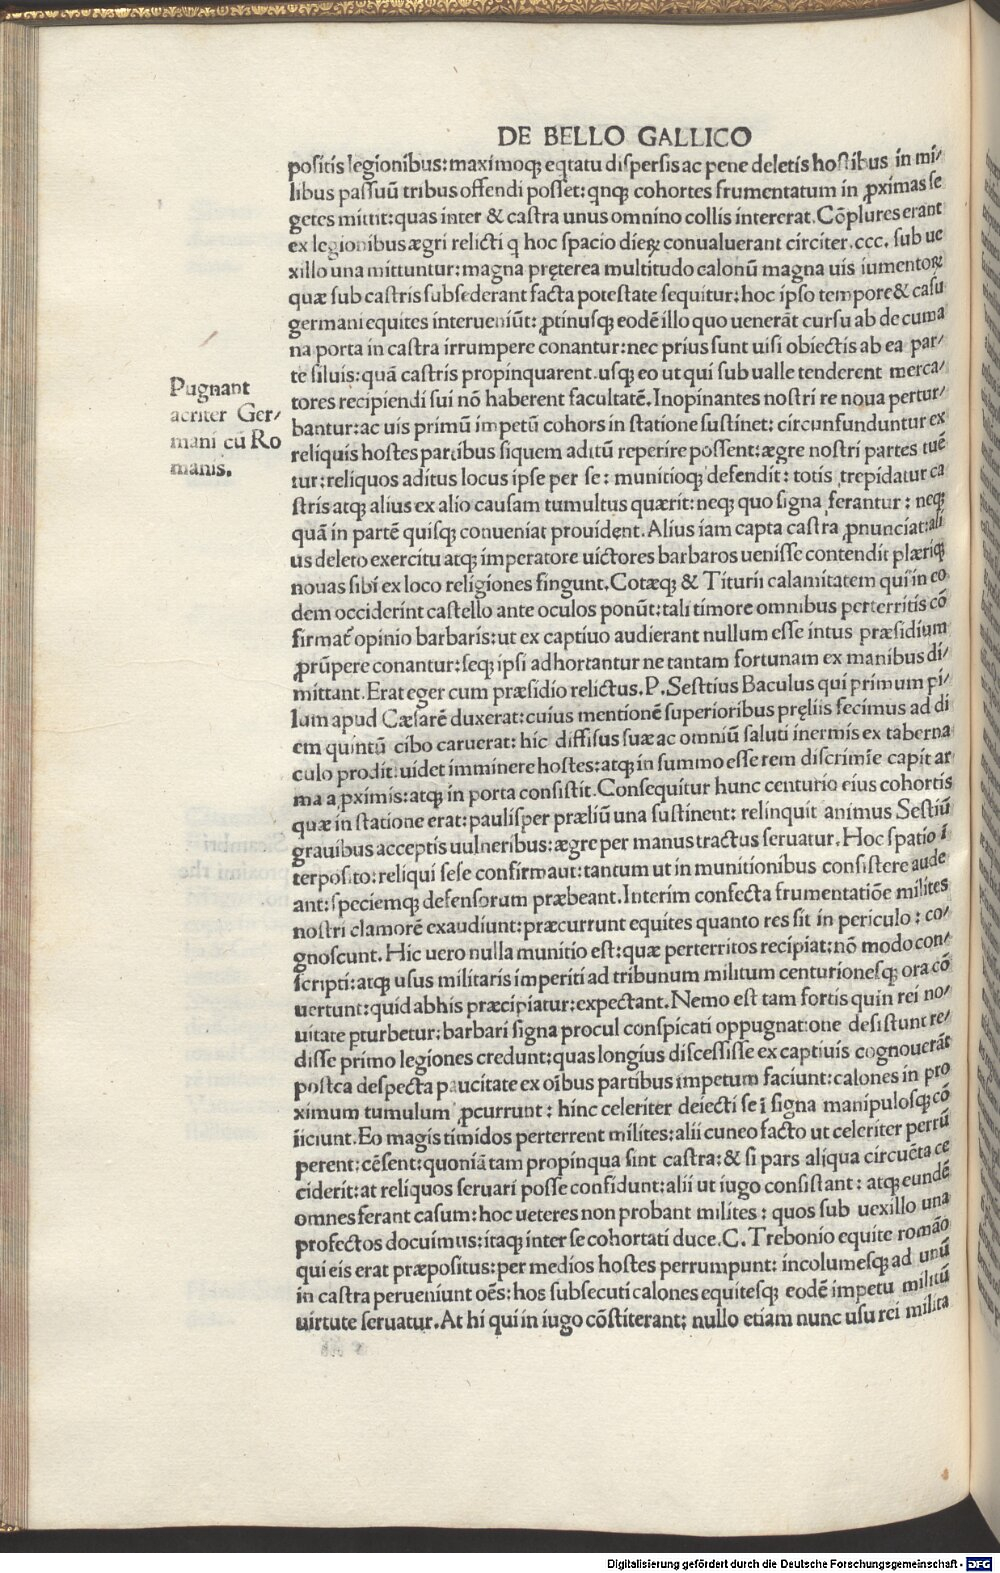 DE BELLO GALLICO
positis legionibus: maximoq; eqtatu dispersis ac pene deletis hostibus in mi/
libus passuũ tribus offendi posset: qnq; cohortes frumentatum in ꝓximas se
getes mittit: quas inter & castra unus omnino collis intererat. Cõplures erant
ex legionibus ægri relicti q hoc spacio dieꝝ conualuerant circiter .ccc. sub ue
xillo una mittuntur: magna pręterea multitudo calonũ magna uis iumentoꝝ
quæ sub castris subsederant facta potestate sequitur: hoc ipso tempore & casu
germani equites interueniũt: ꝓtinusq; eodẽ illo quo uenerãt cursu ab decuma
na porta in castra irrumpere conantur: nec prius sunt uisi obiectis ab ea par/
te siluis: quã castris propinquarent. usq; eo ut qui sub ualle tenderent merca/
tores recipiendi sui nõ haberent facultatẽ. Inopinantes nostri re noua pertur/
bantur: ac uis primũ impetũ cohors in statione sustinet: circunfunduntur ex
reliquis hostes partibus siquem aditũ reperire possent: ægre nostri partes tuẽ
tur: reliquos aditus locus ipse per se: munitioq; defendit: totis trepidatur ca
stris atq; alius ex alio causam tumultus quærit: neq; quo signa ferantur: neq;
quã in partẽ quisq; conueniat prouidẽnt. Alius iam capta castra ꝓnunciat: ali
us deleto exercitu atq; imperatore uictores barbaros uenisse contendit plæriq;
nouas sibi ex loco religiones fingunt. Cotæq; & Titurii calamitatem qui in eo
dem occiderint castello ante oculos ponũt: tali timore omnibus perterritis cõ
firmat̃ opinio barbaris: ut ex captiuo audierant nullum esse intus præsidium
ꝓrũpere conantur: seq; ipsi adhortantur ne tantam fortunam ex manibus di/
mittant. Erat eger cum præsidio relictus. P. Sesttius Baculus qui primum pi/
lum apud Cæsarẽ duxerat: cuius mentionẽ superioribus pręliis fecimus ad di
em quintũ cibo caruerat: hic diffisus suæ ac omniũ saluti inermis ex taberna
culo prodit: uidet imminere hostes: atq; in summo esse rem discrimĩe capit ar
ma a ꝓximis: atq; in porta consistit. Consequitur hunc centurio eius cohortis
quæ in statione erat: paulisper præliũ una sustinent: relinquit animus Sestiũ
grauibus acceptis uulneribus: ægre per manus tractus seruatur. Hoc spatio ĩ
terposito: reliqui sese confirmaut: tantum ut in munitionibus consistere aude
ant: speciemq; defensorum præbeant. Interim confecta frumentatiõe milites
nostri clamorẽ exaudiunt: præcurrunt equites quanto res sit in periculo: co/
gnoscunt. Hic uero nulla munitio est: quæ perterritos recipiat: nõ modo con/
scripti: atq; usus militaris imperiti ad tribunum militum centurionesq; ora cõ
uertunt: quid abhis præcipiatur: expectant. Nemo est tam fortis quin rei no/
uitate ꝑturbetur: barbari signa procul conspicati oppugnatione desistunt re/
disse primo legiones credunt: quas longius discessisse ex captiuis cognouerãt
postca despecta paucitate ex oĩbus partibus impetum faciunt: calones in pro
ximum tumulum ꝓcurrunt: hinc celeriter deiecti se ĩ signa manipulosq; cõ
iiciunt. Eo magis timidos perterrent milites: alii cuneo facto ut celeriter perrũ
perent: cẽsent: quoniã tam propinqua sint castra: & si pars aliqua circuẽta ce
ciderit: at reliquos seruari posse confidunt: alii ut iugo consistant: atq; eundẽ
omnes ferant casum: hoc ueteres non probant milites: quos sub uexillo una
profectos docuimus: itaq; inter se cohortati duce. C. Trebonio equite romão
qui eis erat præpositus: per medios hostes perrumpunt: incolumesq; ad unũ
in castra perueniunt oẽs: hos subsecuti calones equitesq; eodẽ impetu militũ
uirtute seruatur. At hi qui in iugo cõstiterant: nullo etiam nunc usu rei milita
Pugnant
acriter Ger/
mani cũ Ro
manis.
Digitalisierung gefördert durch die Deutsche Forschungsgemeinschaft - DFG